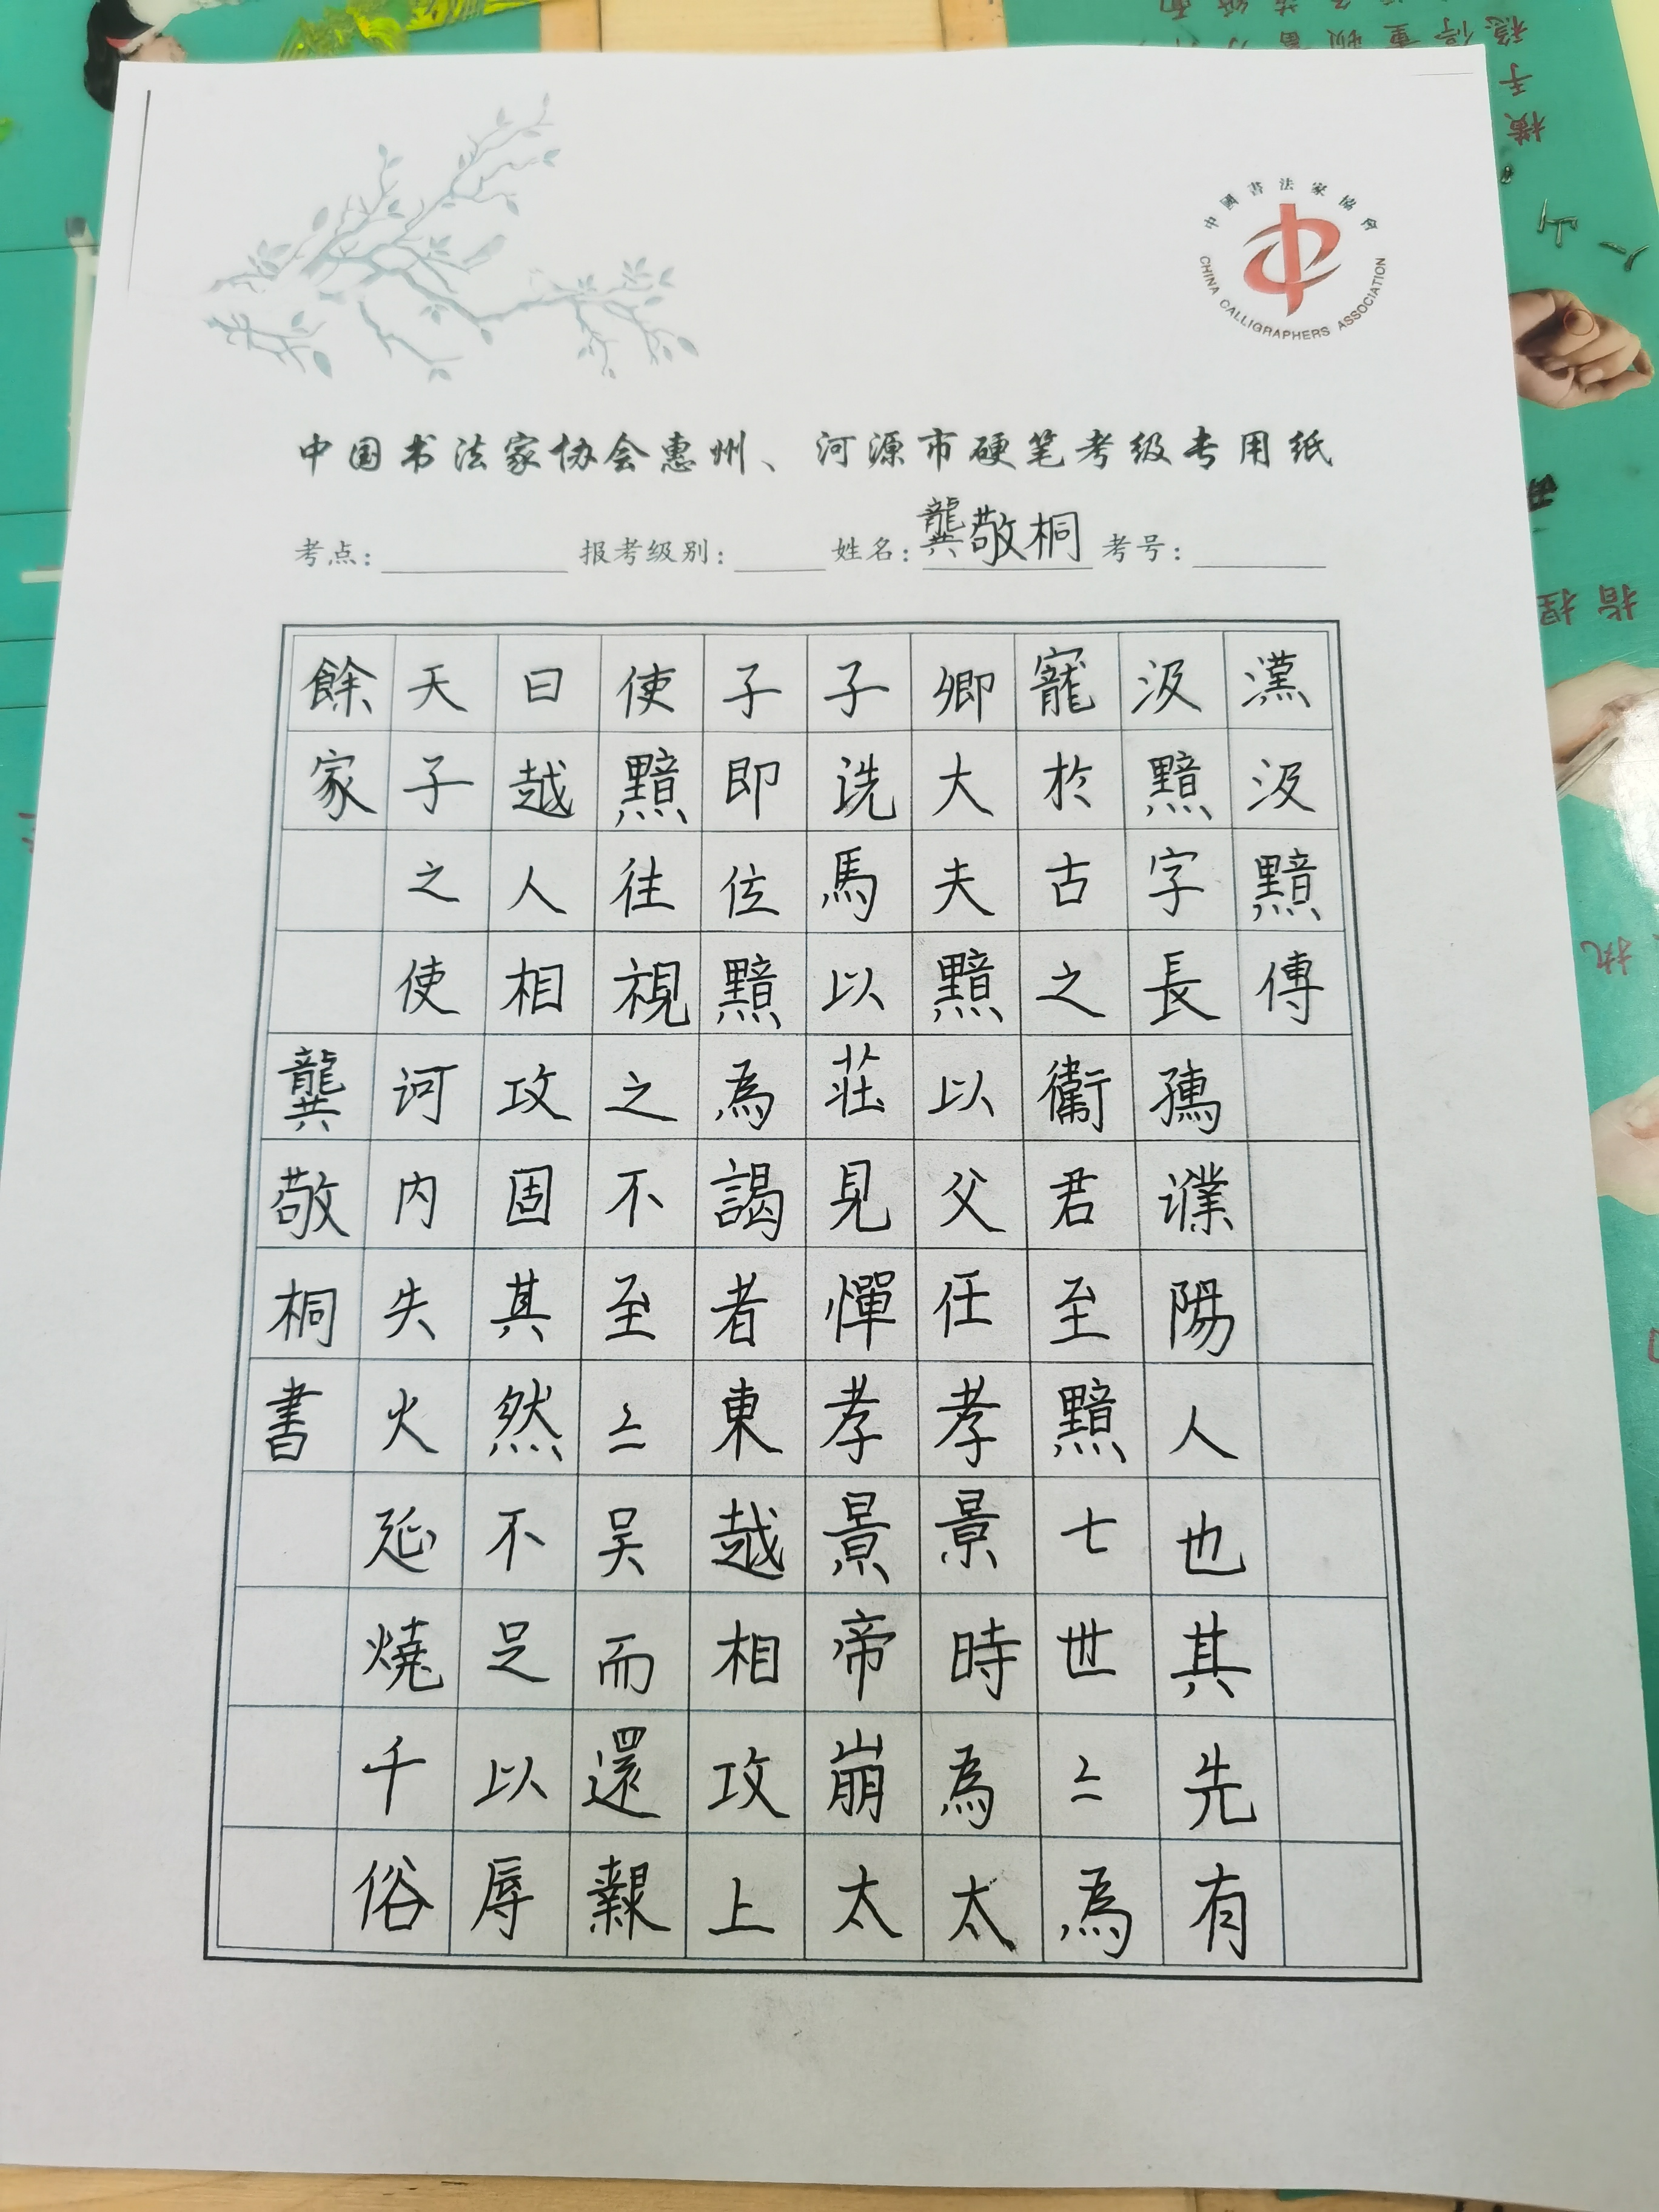 中國書法家協會
CHINA CALLIGRAPHERS ASSOCIATION
中国书法家协会惠州、河源市硬笔考级专用纸
考点: 报考级别: 姓名: 龔敬桐 考号:
漢汲黯傳
汲黯字長孺濮陽人也其先有
寵於古之衛君至黯七世〻為
卿大夫黯以父任孝景時為太
子洗馬以莊見憚孝景帝崩太
子即位黯為謁者東越相攻上
使黯往視之不至〻吳而還報
曰越人相攻固其然不足以辱
天子之使河內失火延燒千俗
餘家 龔敬桐書